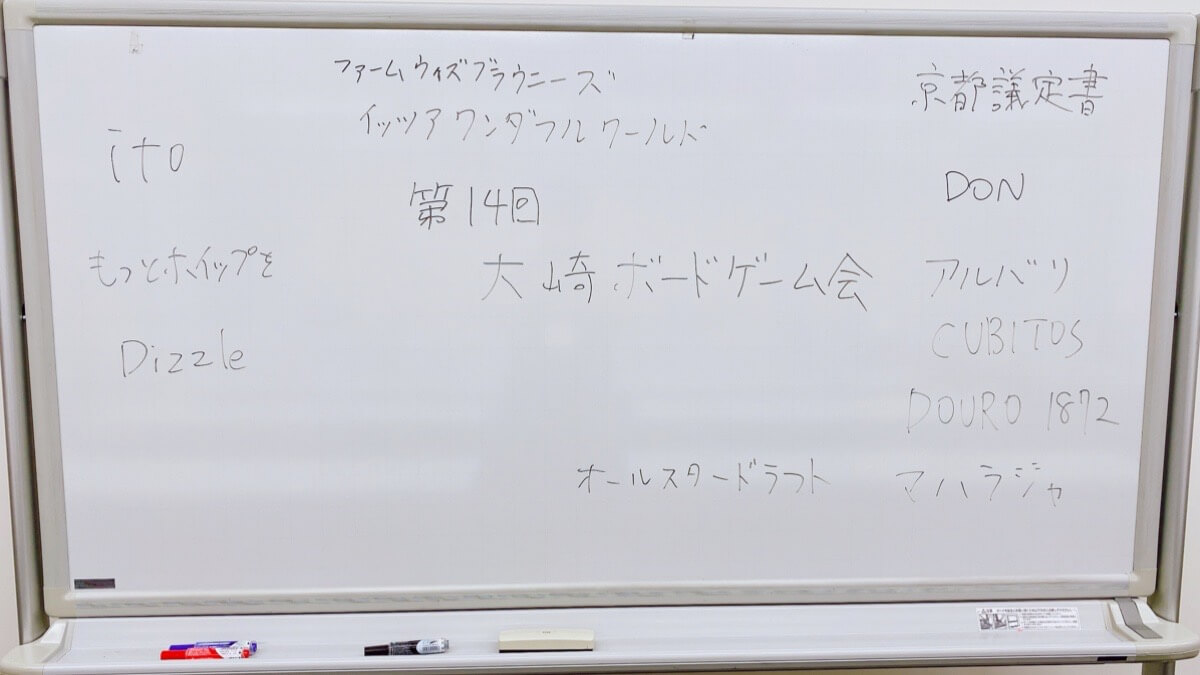 ファームウィズブラウニーズ
イッツアワンダフルワールド
京都議定書
ito
DON
第14回
大崎ボードゲーム会
もっとホイップを
アルバリ
CUBITOS
Dizzle
DOURO 1872
オールスタードラフト
マハラジャ